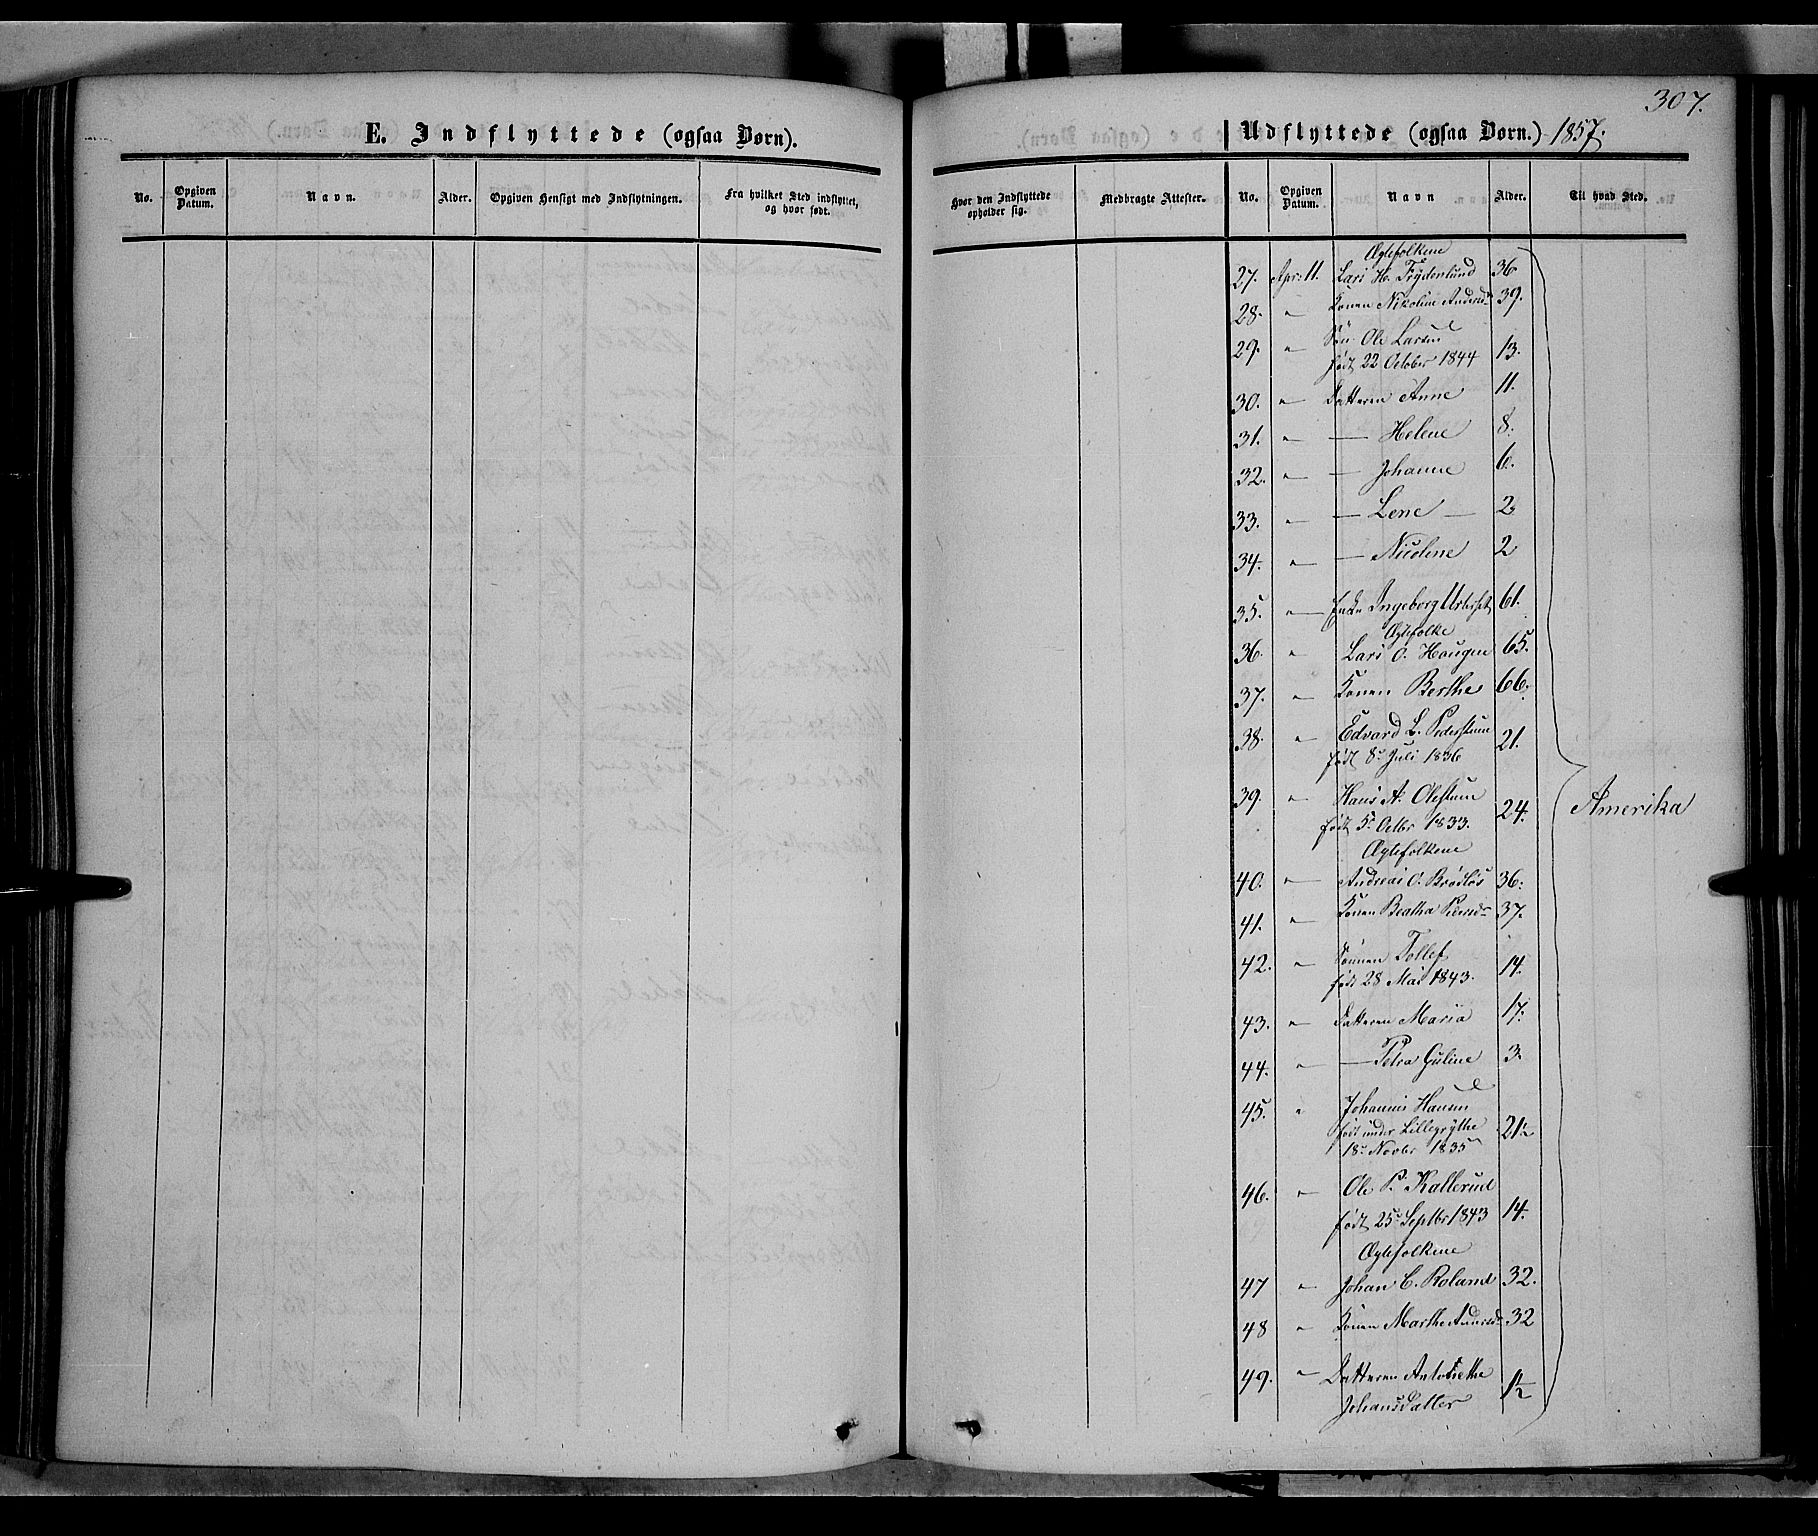 307.
E. Indflyttede (ogsaa Børn).
No. Opgiven Datum. Navn. Alder. Opgiven Hensigt med Indflytningen. Fra hvilket Sted indflyttet, og hvor født.
Udflyttede (ogsaa Børn.) 1857.
Hvor den Indflyttede opholder sig. Medbragte Attester. No. Opgiven Datum. Navn Alder. Til hvad Sted.
Ægtefolkene
27. Apr. 11. Lars H. Frydenlund 36
28. " Konen Nikoline Andersd. 39.
29. " Søn Ole Larsen 13.
født 22 October 1844
30. " Datteren Anne 11.
31. " — Helene 8.
32. " — Johanne 6.
33. " — Lene — 2
34. " — Nicoline 2
35. " Enke Ingeborg 61.
Ægtefolke
36. " Lars O. Haugen 65.
37. " Konen Berthe 66.
38. " Edvard L. 21.
født 8de Juli 1836
39. " Hans A. 24.
født 5te Octbr 1833.
Amerika
Ægtefolkene
40. " Andreas O. Brødløs 36.
41. " Konen Beatha Pedersd. 37.
42. " Sønnen Tollef 14.
født 28 Mai 1843.
43. " Datteren Maria 17.
44. " — Petra Guline 3.
45. " Johannes Hansen
født under Lillegrythe 21½
18de Novbr 1835
46. " Ole P. Kallerud
født 25de Septbr 1843 14.
Ægtefolkene
47 " Johan C. Roland 32.
48 " Konen Marthe 32
49. " Datteren Antonethe 1½
Johansdatter